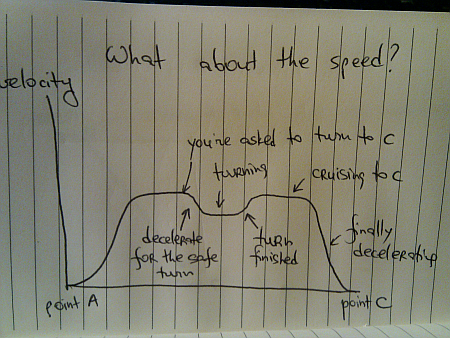 What about the speed?
velocity
you're asked to turn to C
turning
cruising to C
decelerate
for the safe
turn
turn
finished
finally
decelerating
point A
point C